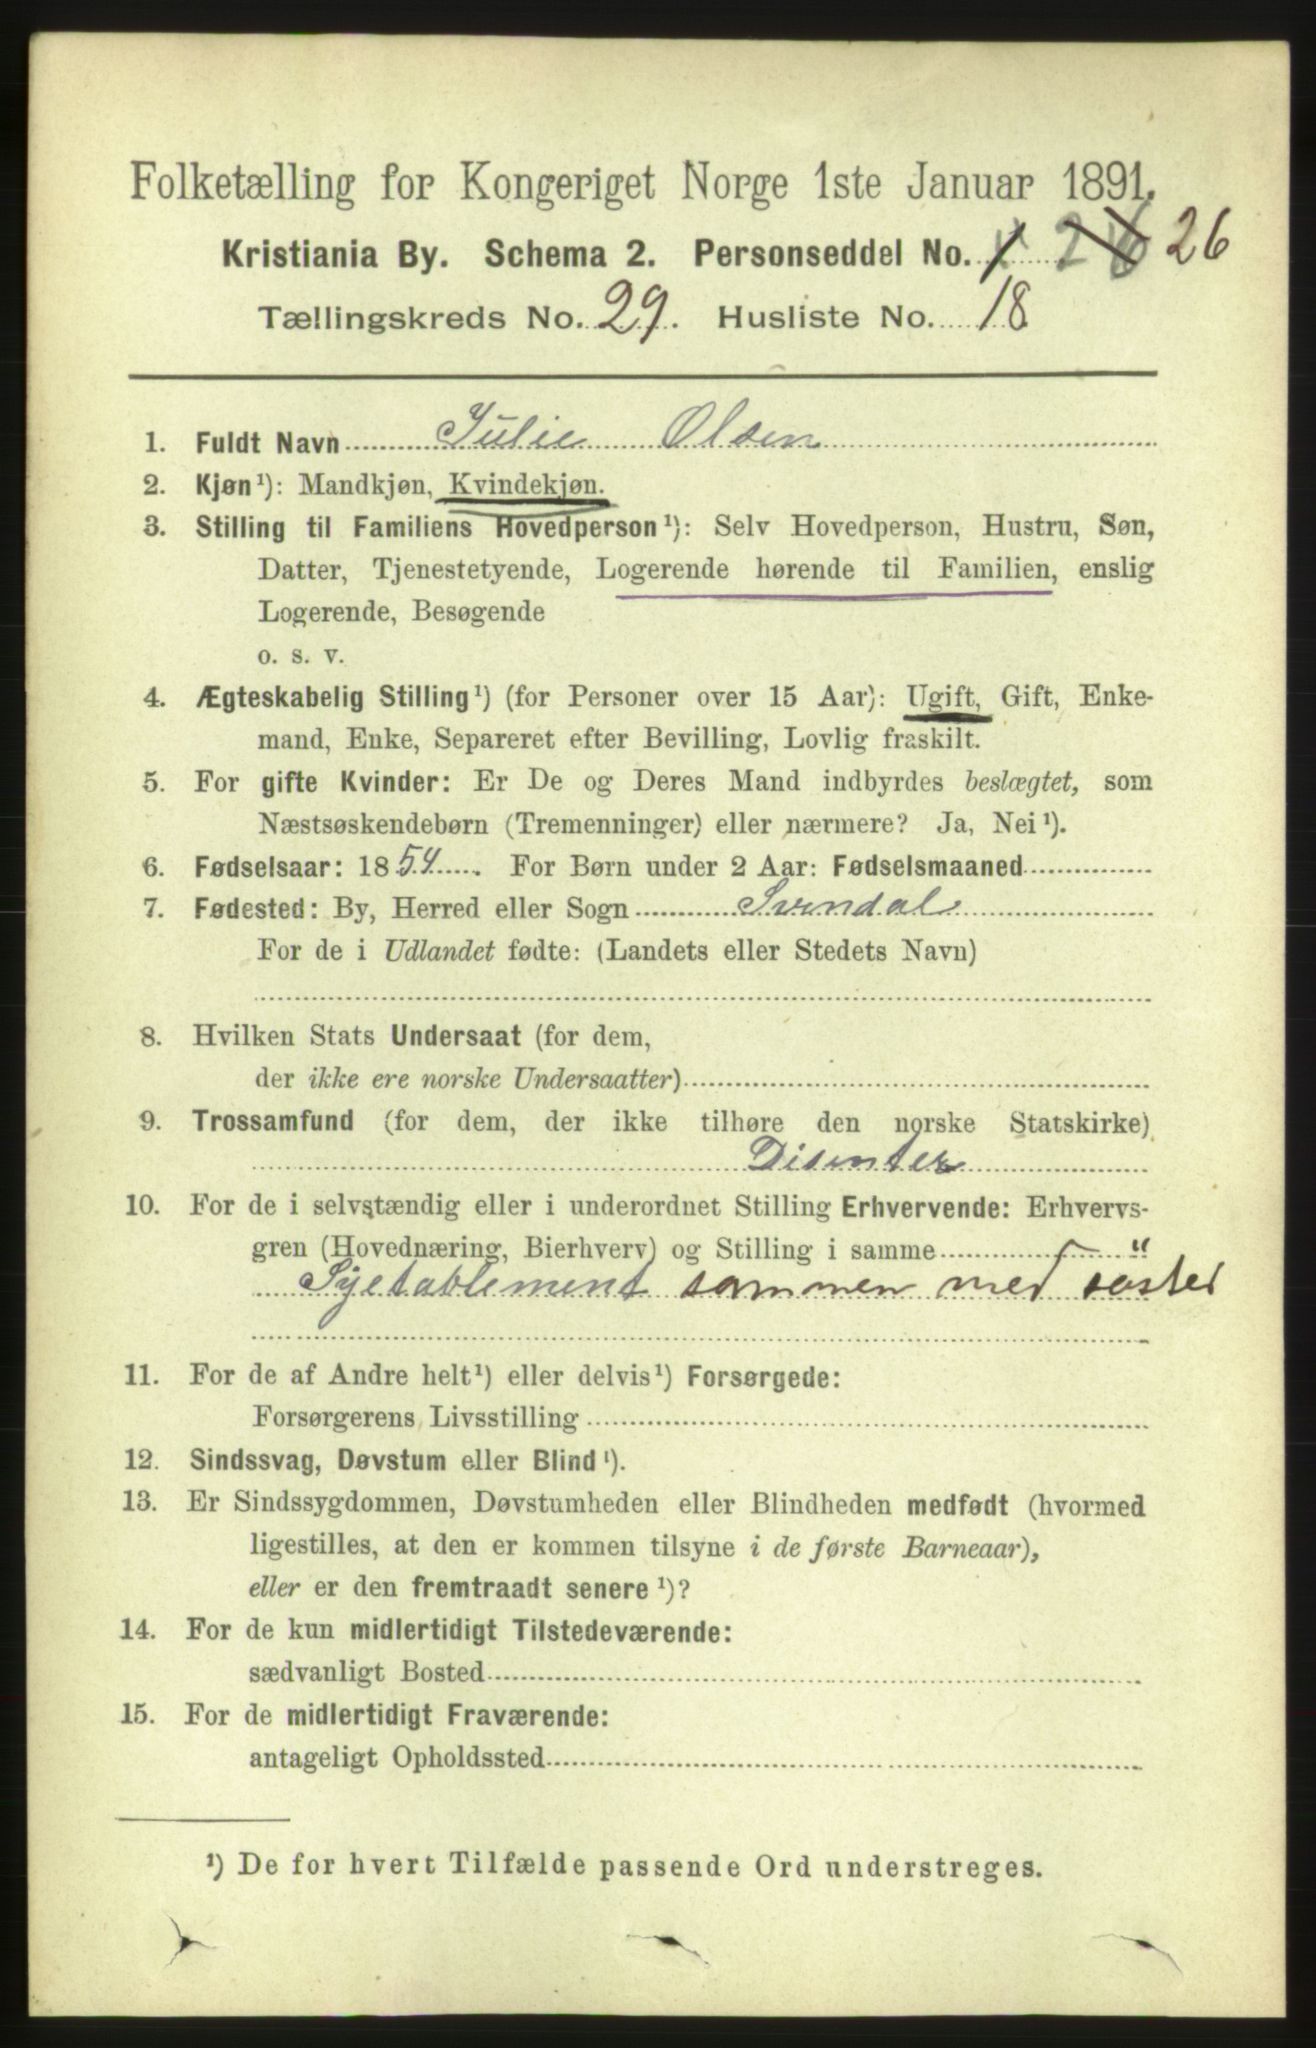 Folketælling for Kongeriget Norge 1ste Januar 1891.
Kristiania By. Schema 2. Personseddel No. 26
Tællingskreds No. 29. Husliste No. 18
1. Fuldt Navn Julie Olsen
2. Kjøn¹): Mandkjøn, Kvindekjøn.
3. Stilling til Familiens Hovedperson¹): Selv Hovedperson, Hustru, Søn,
Datter, Tjenestetyende, Logerende hørende til Familien, enslig
Logerende, Besøgende
o. s. v.
4. Ægteskabelig Stilling¹) (for Personer over 15 Aar): Ugift, Gift, Enke-
mand, Enke, Separeret efter Bevilling, Lovlig fraskilt.
5. For gifte Kvinder: Er De og Deres Mand indbyrdes beslægtet, som
Næstsøskendebørn (Tremenninger) eller nærmere? Ja, Nei¹).
6. Fødselsaar: 1854. For Børn under 2 Aar: Fødselsmaaned
7. Fødested: By, Herred eller Sogn Svendal
For de i Udlandet fødte: (Landets eller Stedets Navn)
8. Hvilken Stats Undersaat (for dem,
der ikke ere norske Undersaatter)
9. Trossamfund (for dem, der ikke tilhøre den norske Statskirke)
Disenter
10. For de i selvstændig eller i underordnet Stilling Erhvervende: Erhvervs-
gren (Hovednæring, Bierhverv) og Stilling i samme "
Syetablement sammen med søster
11. For de af Andre helt¹) eller delvis¹) Forsørgede:
Forsørgerens Livsstilling
12. Sindssvag, Døvstum eller Blind¹).
13. Er Sindssygdommen, Døvstumheden eller Blindheden medfødt (hvormed
ligestilles, at den er kommen tilsyne i de første Barneaar),
eller er den fremtraadt senere¹)?
14. For de kun midlertidigt Tilstedeværende:
sædvanligt Bosted
15. For de midlertidigt Fraværende:
antageligt Opholdssted
¹) De for hvert Tilfælde passende Ord understreges.